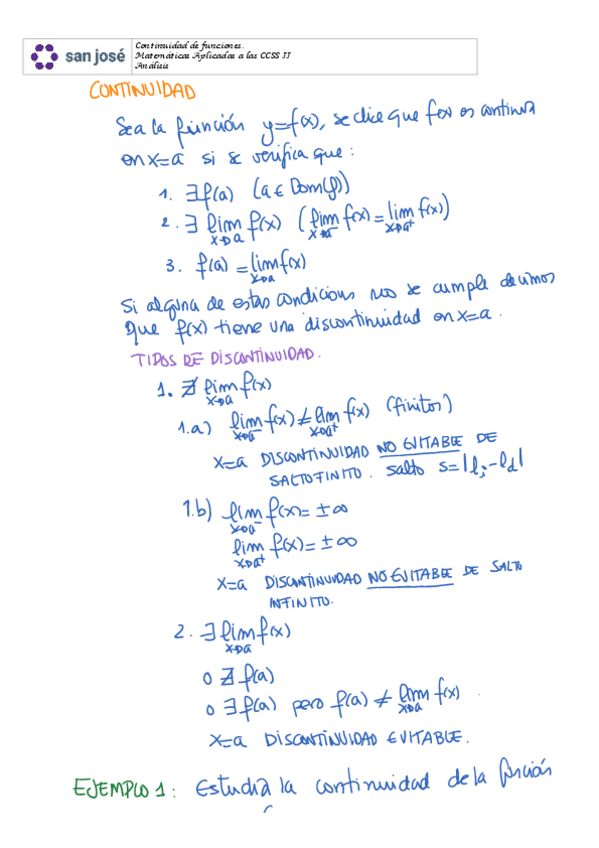 san josé
Continuidad de funciones.
Matemáticas Aplicadas a las CCSS II
Análisis
CONTINUIDAD
Sea la función y=f(x), se dice que f(x) es continua
en x=a si se verifica que:
1. ∃f(a) (a ∈ Dom(f))
2. ∃ lim f(x) (lim f(x) = lim f(x))
x→a x→a⁻ x→a⁺
3. f(a) = lim f(x)
x→a
Si alguna de estas condiciones no se cumple decimos
que f(x) tiene una discontinuidad en x=a.
TIPOS DE DISCONTINUIDAD.
1. ∄ lim f(x)
x→a
1.a) lim f(x) ≠ lim f(x) (finitos)
x→a⁻ x→a⁺
x=a DISCONTINUIDAD NO EVITABLE DE
SALTO FINITO. salto s=|li-ld|
1.b) lim f(x) = ±∞
x→a⁻
lim f(x) = ±∞
x→a⁺
x=a DISCONTINUIDAD NO EVITABLE DE SALTO
INFINITO.
2. ∃ lim f(x)
x→a
o ∄ f(a)
o ∃ f(a) pero f(a) ≠ lim f(x)
x→a
x=a DISCONTINUIDAD EVITABLE.
EJEMPLO 1: Estudia la continuidad de la función